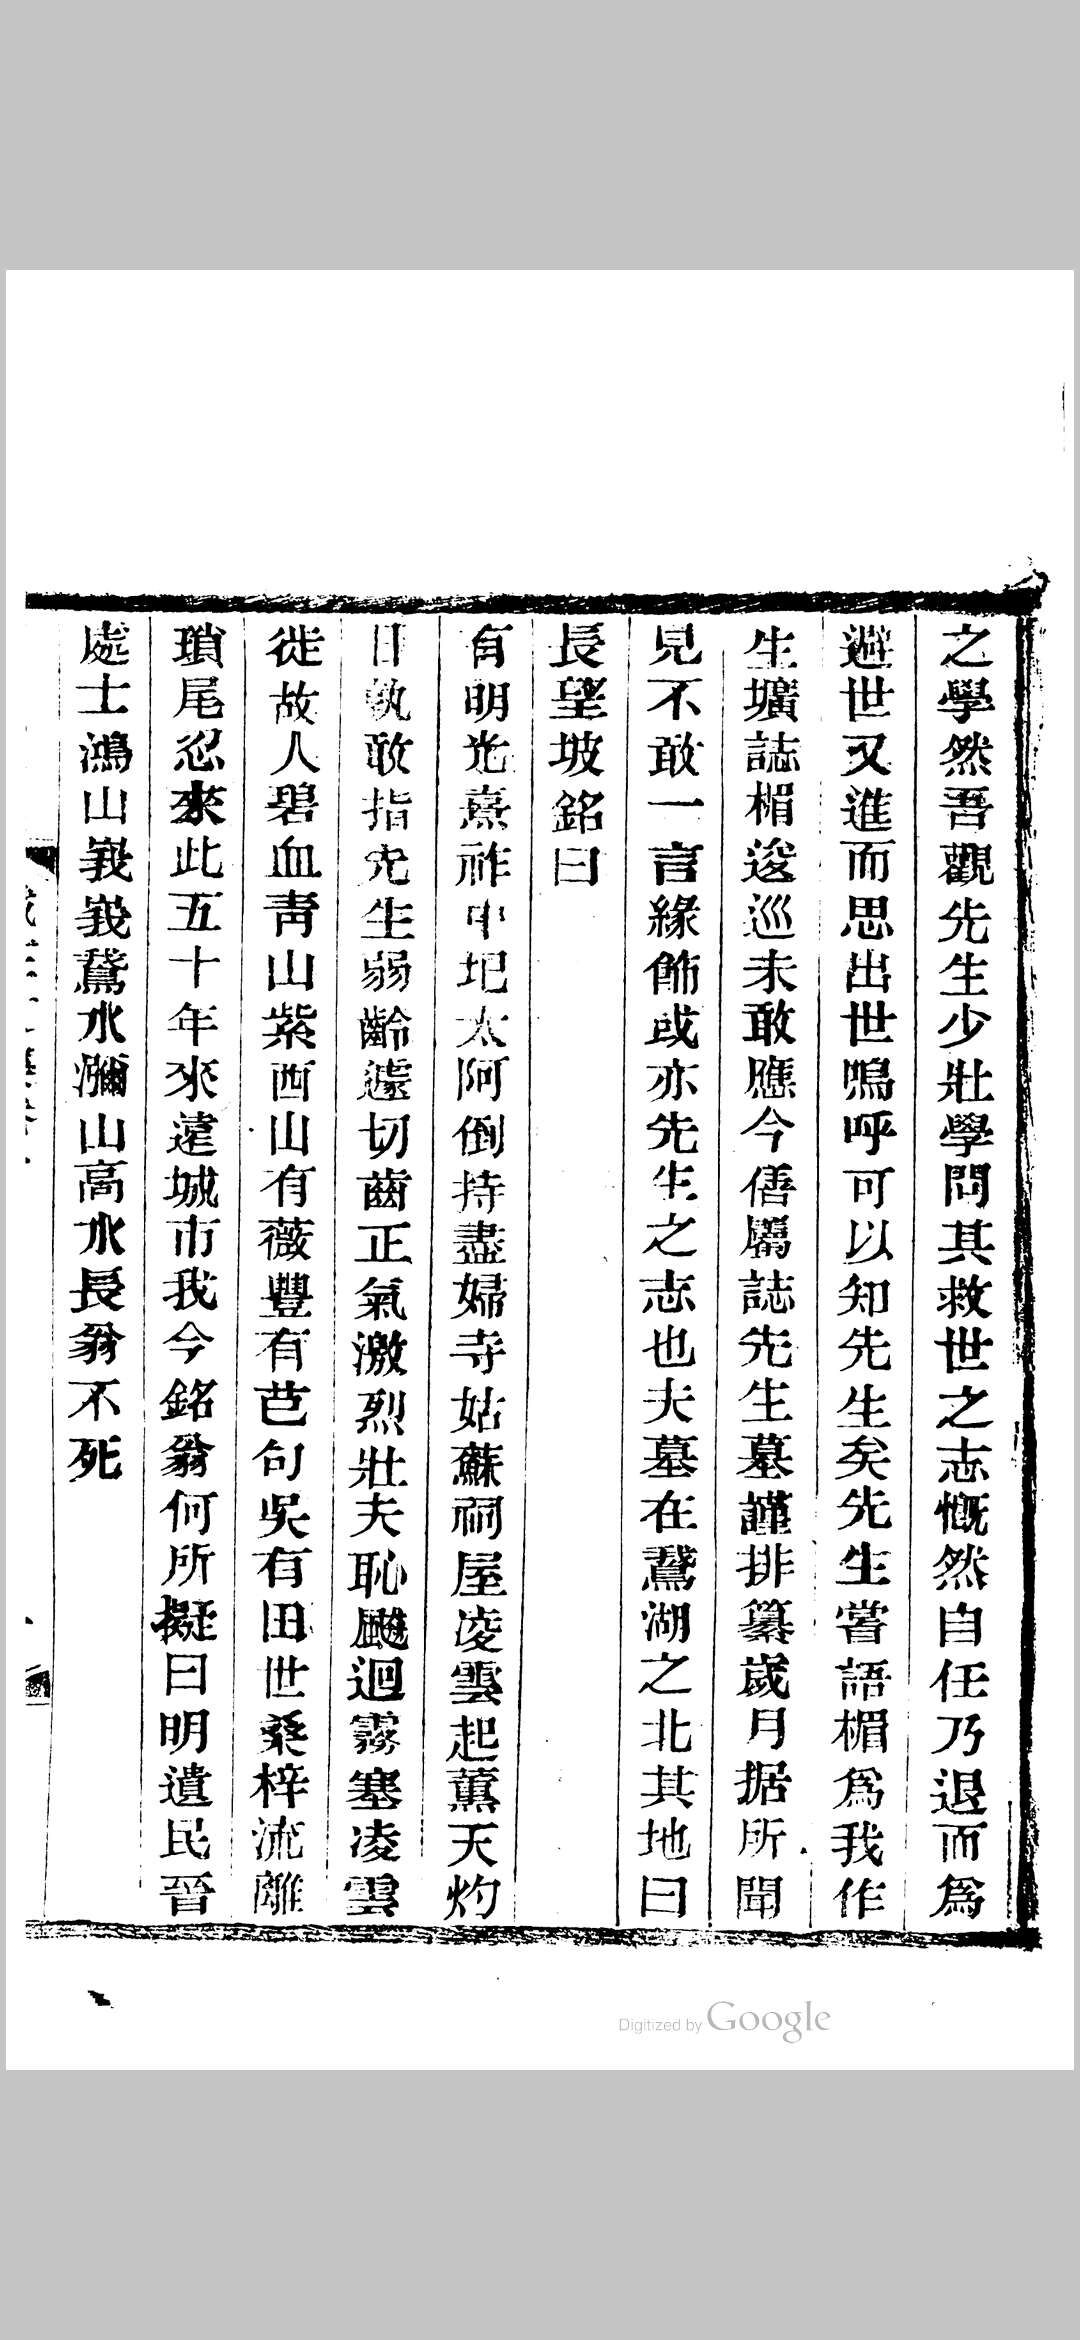 之學然吾觀先生少壯學問其救世之志慨然自任乃退而爲
避世又進而思出世嗚呼可以知先生矣先生嘗語楣爲我作
生壙誌楣逡巡未敢應今僐屬誌先生墓謹排纂歲月据所聞
見不敢一言緣飾或亦先生之志也夫墓在鵞湖之北其地曰
長望坡銘曰
有明光熹祚中圮太阿倒持盡婦寺姑蘇祠屋凌雲起薰天灼
日孰敢指先生弱齡遽切齒正氣激烈壯夫恥颷迴霧塞凌雲
徙故人碧血靑山紫西山有薇豐有芑句吳有田世桑梓流離
瑣尾忍來此五十年來遠城市我今銘翁何所擬曰明遺民晉
處士鴻山峩峩鵞水瀰山高水長翁不死
Digitized by Google